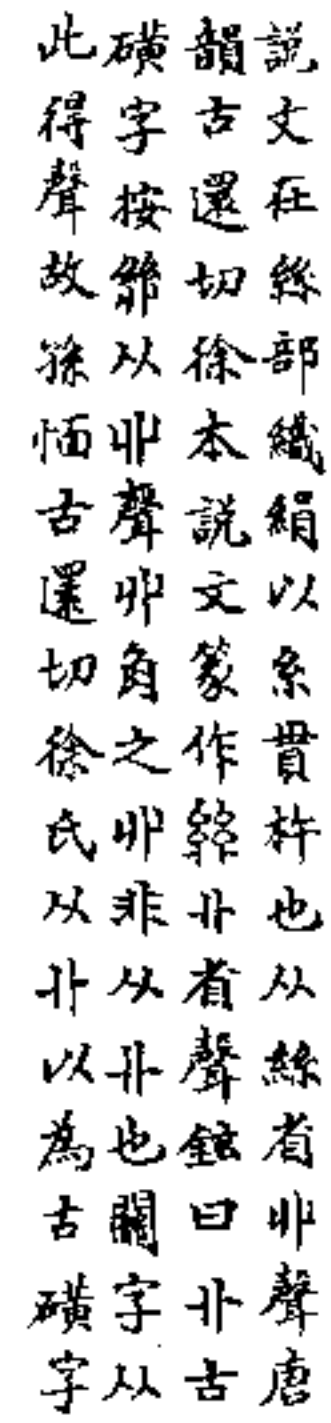 説文在絲部織絹以糸貫杼也从絲省丱聲唐
韻古還切徐本説文篆作𢇇卝省聲鉉曰卝古
磺字按𢇇从丱聲丱角之丱非从卝也關字从
此得聲故孫愐古還切徐氏从卝以為古磺字